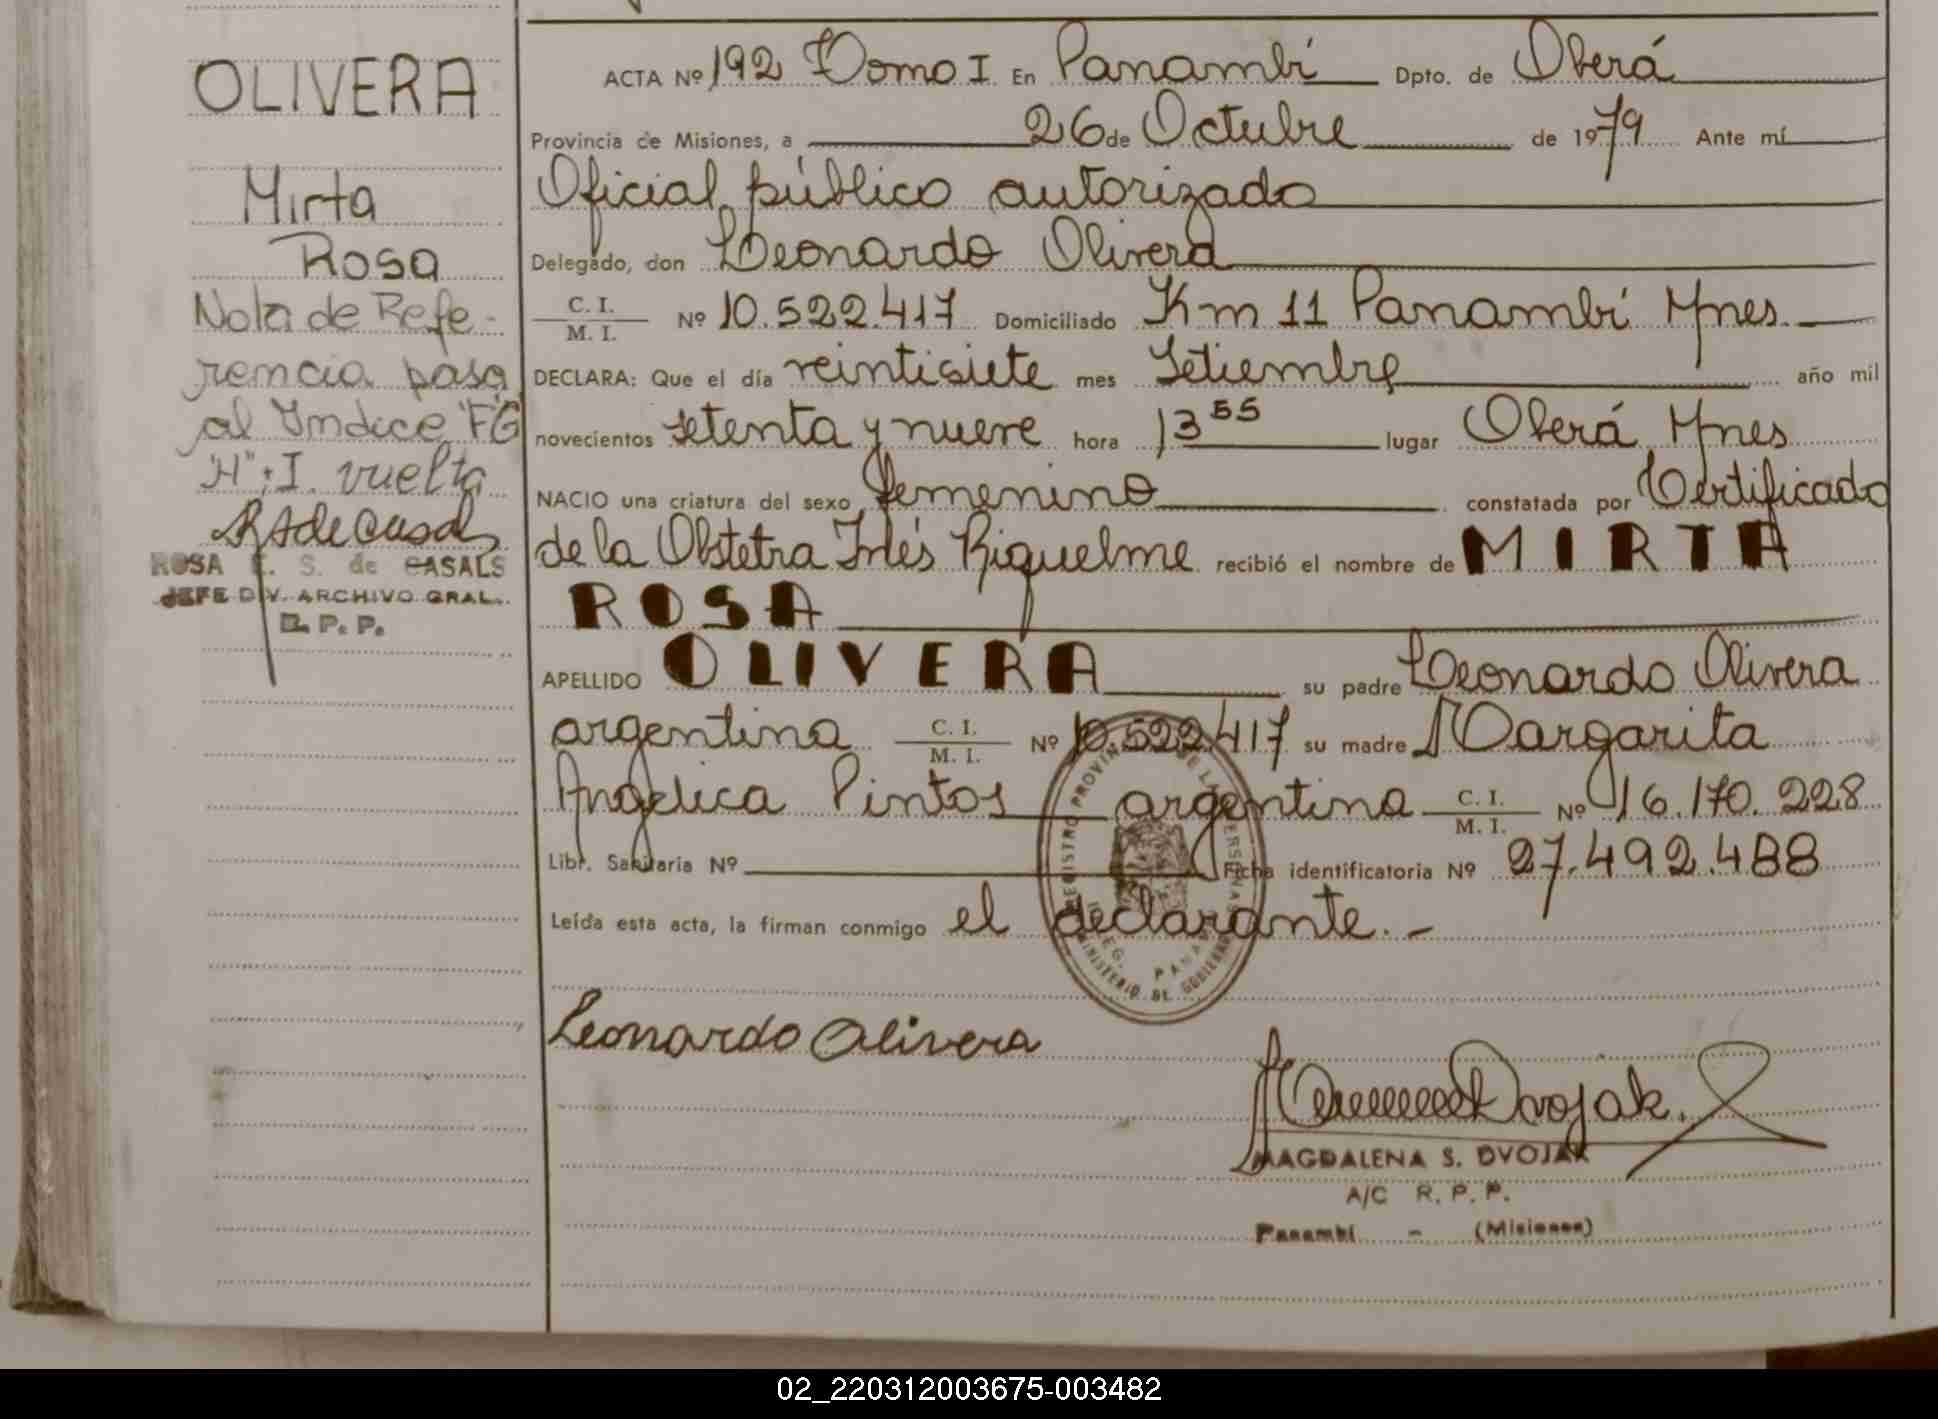 OLIVERA
Mirta
Rosa
Nota de Refe-
rencia pasa
al Indice "FG
"H" I. vuelta
ROSA E. S. de CASALS
JEFE DIV. ARCHIVO GRAL.
R. P. P.
ACTA Nº 192 Tomo I En Panambí Dpto. de Oberá
Provincia de Misiones, a 26 de Octubre de 1979 Ante mí
Oficial público autorizado
Delegado, don Leonardo Olivera
C. I. / M. I. Nº 10.522.417 Domiciliado Km 11 Panambí Mnes.
DECLARA: Que el día veintisiete mes Setiembre año mil
novecientos setenta y nueve hora 13 55 lugar Oberá Mnes
NACIO una criatura del sexo femenino constatada por Certificado
de la Obstetra Inés Riquelme recibió el nombre de MIRTA
ROSA
APELLIDO OLIVERA su padre Leonardo Olivera
argentina C. I. / M. I. Nº 10.522.417 su madre Margarita
Angelica Pintos argentina C. I. / M. I. Nº 16.170.228
Libr. Sanitaria Nº Ficha identificatoria Nº 27.492.488
Leída esta acta, la firman conmigo el declarante.-
Leonardo Olivera
Dvojak.
MAGDALENA S. DVOJAK
A/C R. P. P.
Panambí - (Misiones)
02_220312003675-003482